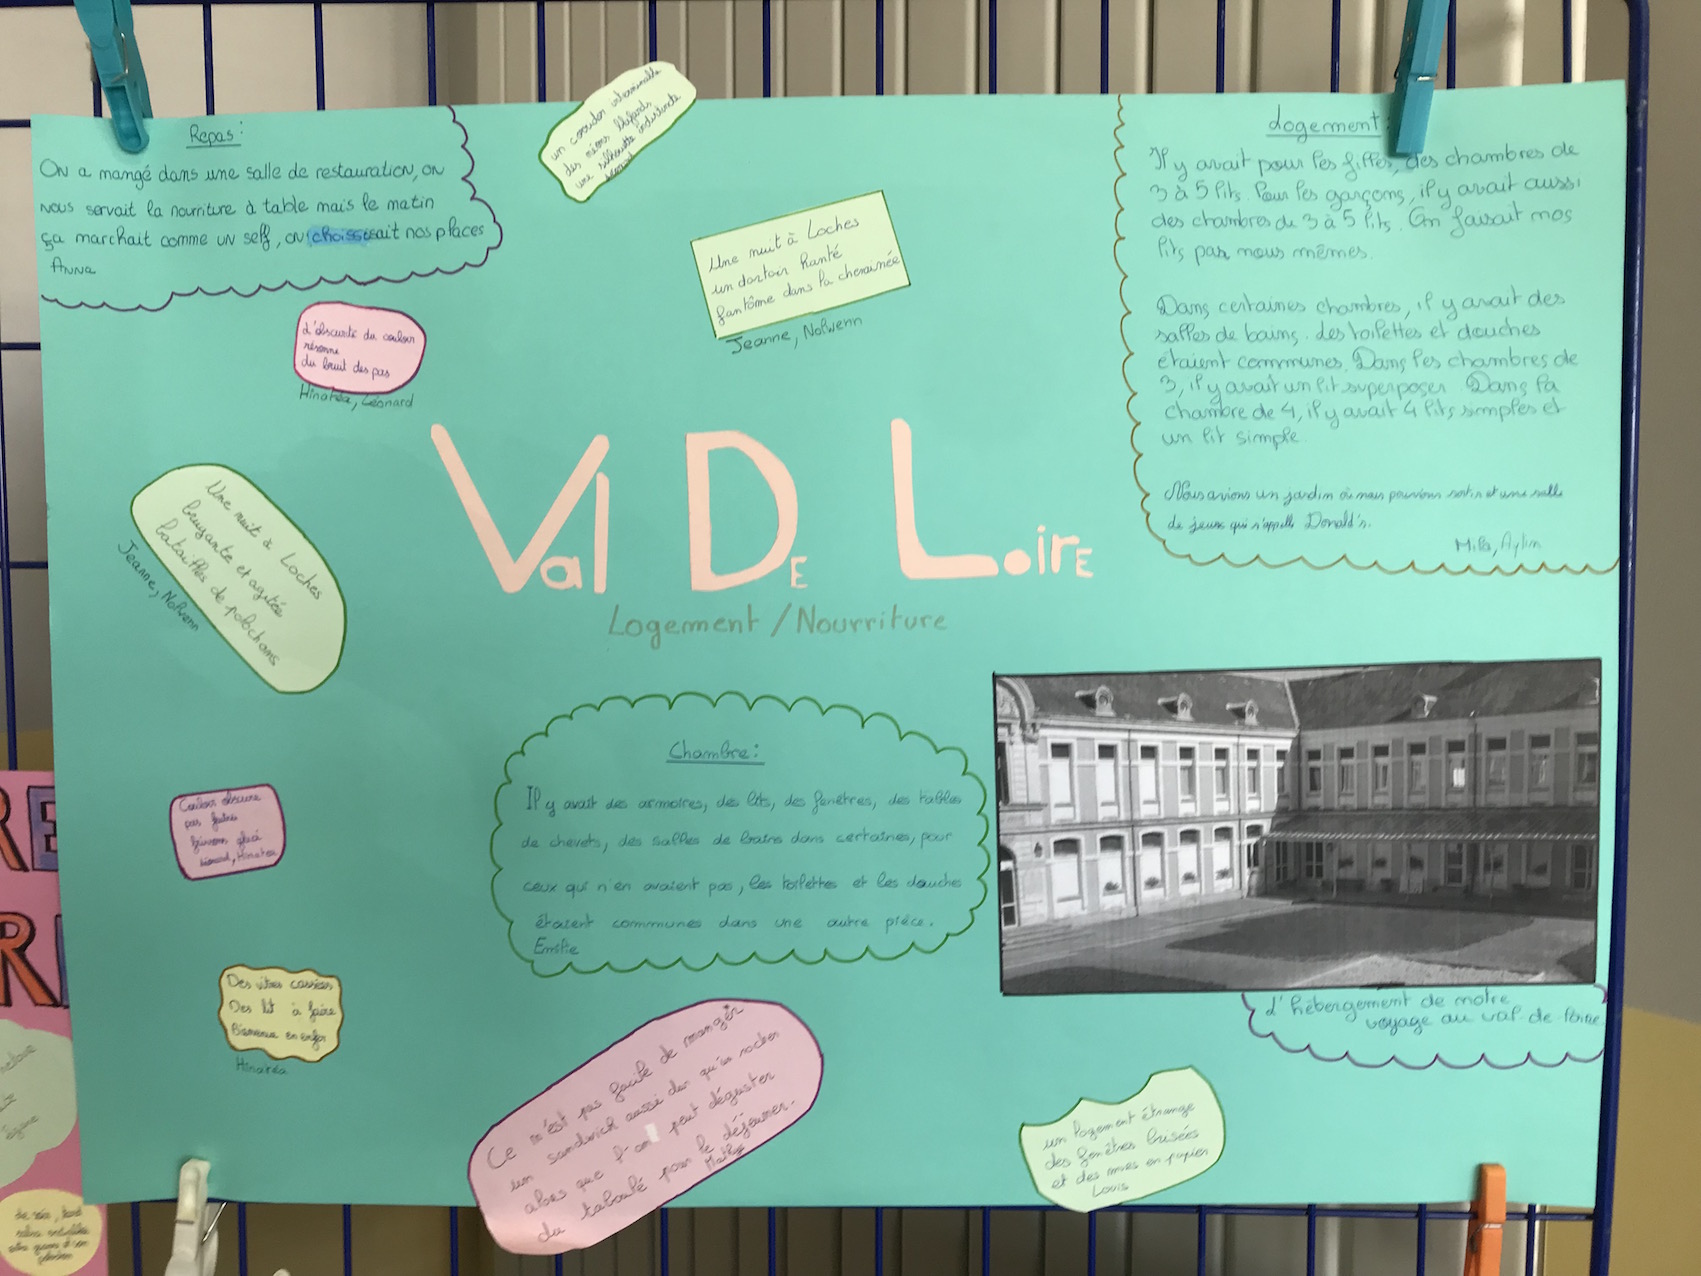 Repas:
On a mangé dans une salle de restauration, on
nous servait la nourriture à table mais le matin
ça marchait comme un self, on choissisait nos places
Anna
un couloir interminable
des néons blafards
une silhouette indistincte
Une nuit à Loches
un dortoir hanté
fantôme dans la cheminée
Jeanne, Nolwenn
Logement:
Il y avait pour les filles, des chambres de
3 à 5 lits. Pour les garçons, il y avait aussi
des chambres de 3 à 5 lits. On faisait nos
lits par nous mêmes.
Dans certaines chambres, il y avait des
salles de bains. Les toilettes et douches
étaient communes. Dans les chambres de
3, il y avait un lit superposer. Dans la
chambre de 4, il y avait 4 lits simples et
un lit simple.
Nous avions un jardin où nous pouvions sortir et une salle
de jeux qui s'appelle Donald's.
Mila, Aylin
L'obscurité du couloir
résonne
du bruit des pas
Hinatéa, Léonard
Une nuit à Loches
bruyante et agitée
batailles de polochons
Jeanne, Nolwenn
Val De Loire
Logement / Nourriture
Chambre:
Il y avait des armoires, des lits, des fenêtres, des tables
de chevets, des salles de bains dans certaines, pour
ceux qui n'en avaient pas, les toilettes et les douches
étaient communes dans une autre pièce.
Emilie
Couloir obscure
pas
Léonard, Hinatéa
Des vitres cassées
Des lit à faire
Bienvenue en enfer
Hinatéa
L'hébergement de notre
voyage au val de Loire
Ce n'est pas facile de manger
un sandwich aussi dur qu'un rocher
alors que l'on peut déguster
du taboulé pour le déjeuner.
un logement étrange
des fenêtres brisées
et des murs en papier
Louis